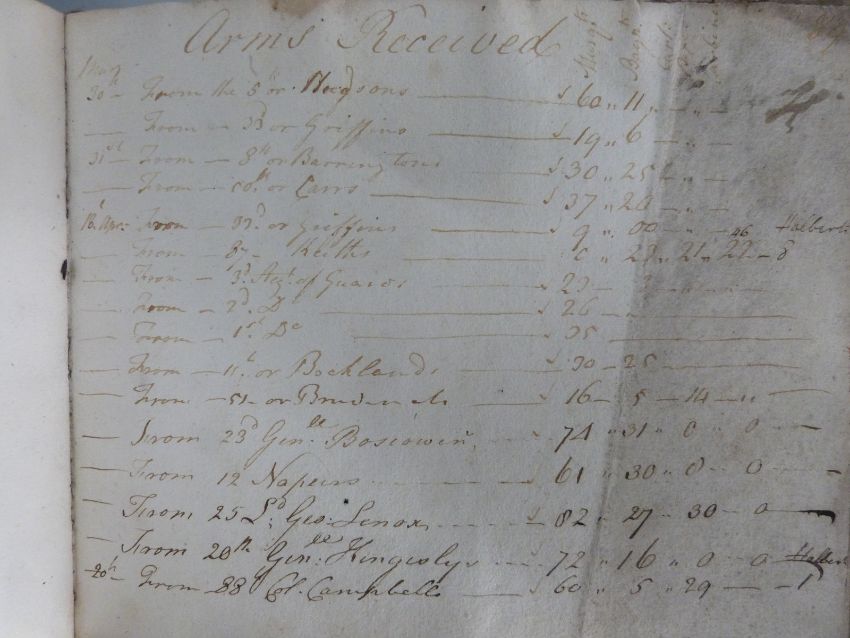 Arms Received
30th — From the 5th or Hodgsons — 60 " 11 " — " —
— From — 33d or Griffins — 19 " 6 — " —
31st — From — 8th or Barringtons — 30 " 25 — " —
— From — 50th or Carrs — 37 " 20 — " —
18 Apr: From — 33d or Griffins — 9 " 00 — " — 46 Halberts
— From — 87 — Keiths — 0 " 23 " 21 " 22 — 8
— From — 3d Regt of Guards — 23 —
— From — 2d Do — 26 —
— From — 1st Do — 35 —
— From — 11th or Bocklands — 30 — 25 —
— From — 51 — or — 16 — 5 — 14 —
— From 23d Genll Boscowin — 74 " 31 " 0 " 0 —
— From 12 Napeirs — 61 " 30 " 0 — 0 —
— From 25 Ld Geo: Lenox — 82 " 27 " 30 — 0 —
— From 20th Genll: Kingsly's — 72 " 16 " 0 — 0 — Halbert
20th — From 88th Col. Campbells — 60 " 5 " 29 — — 1